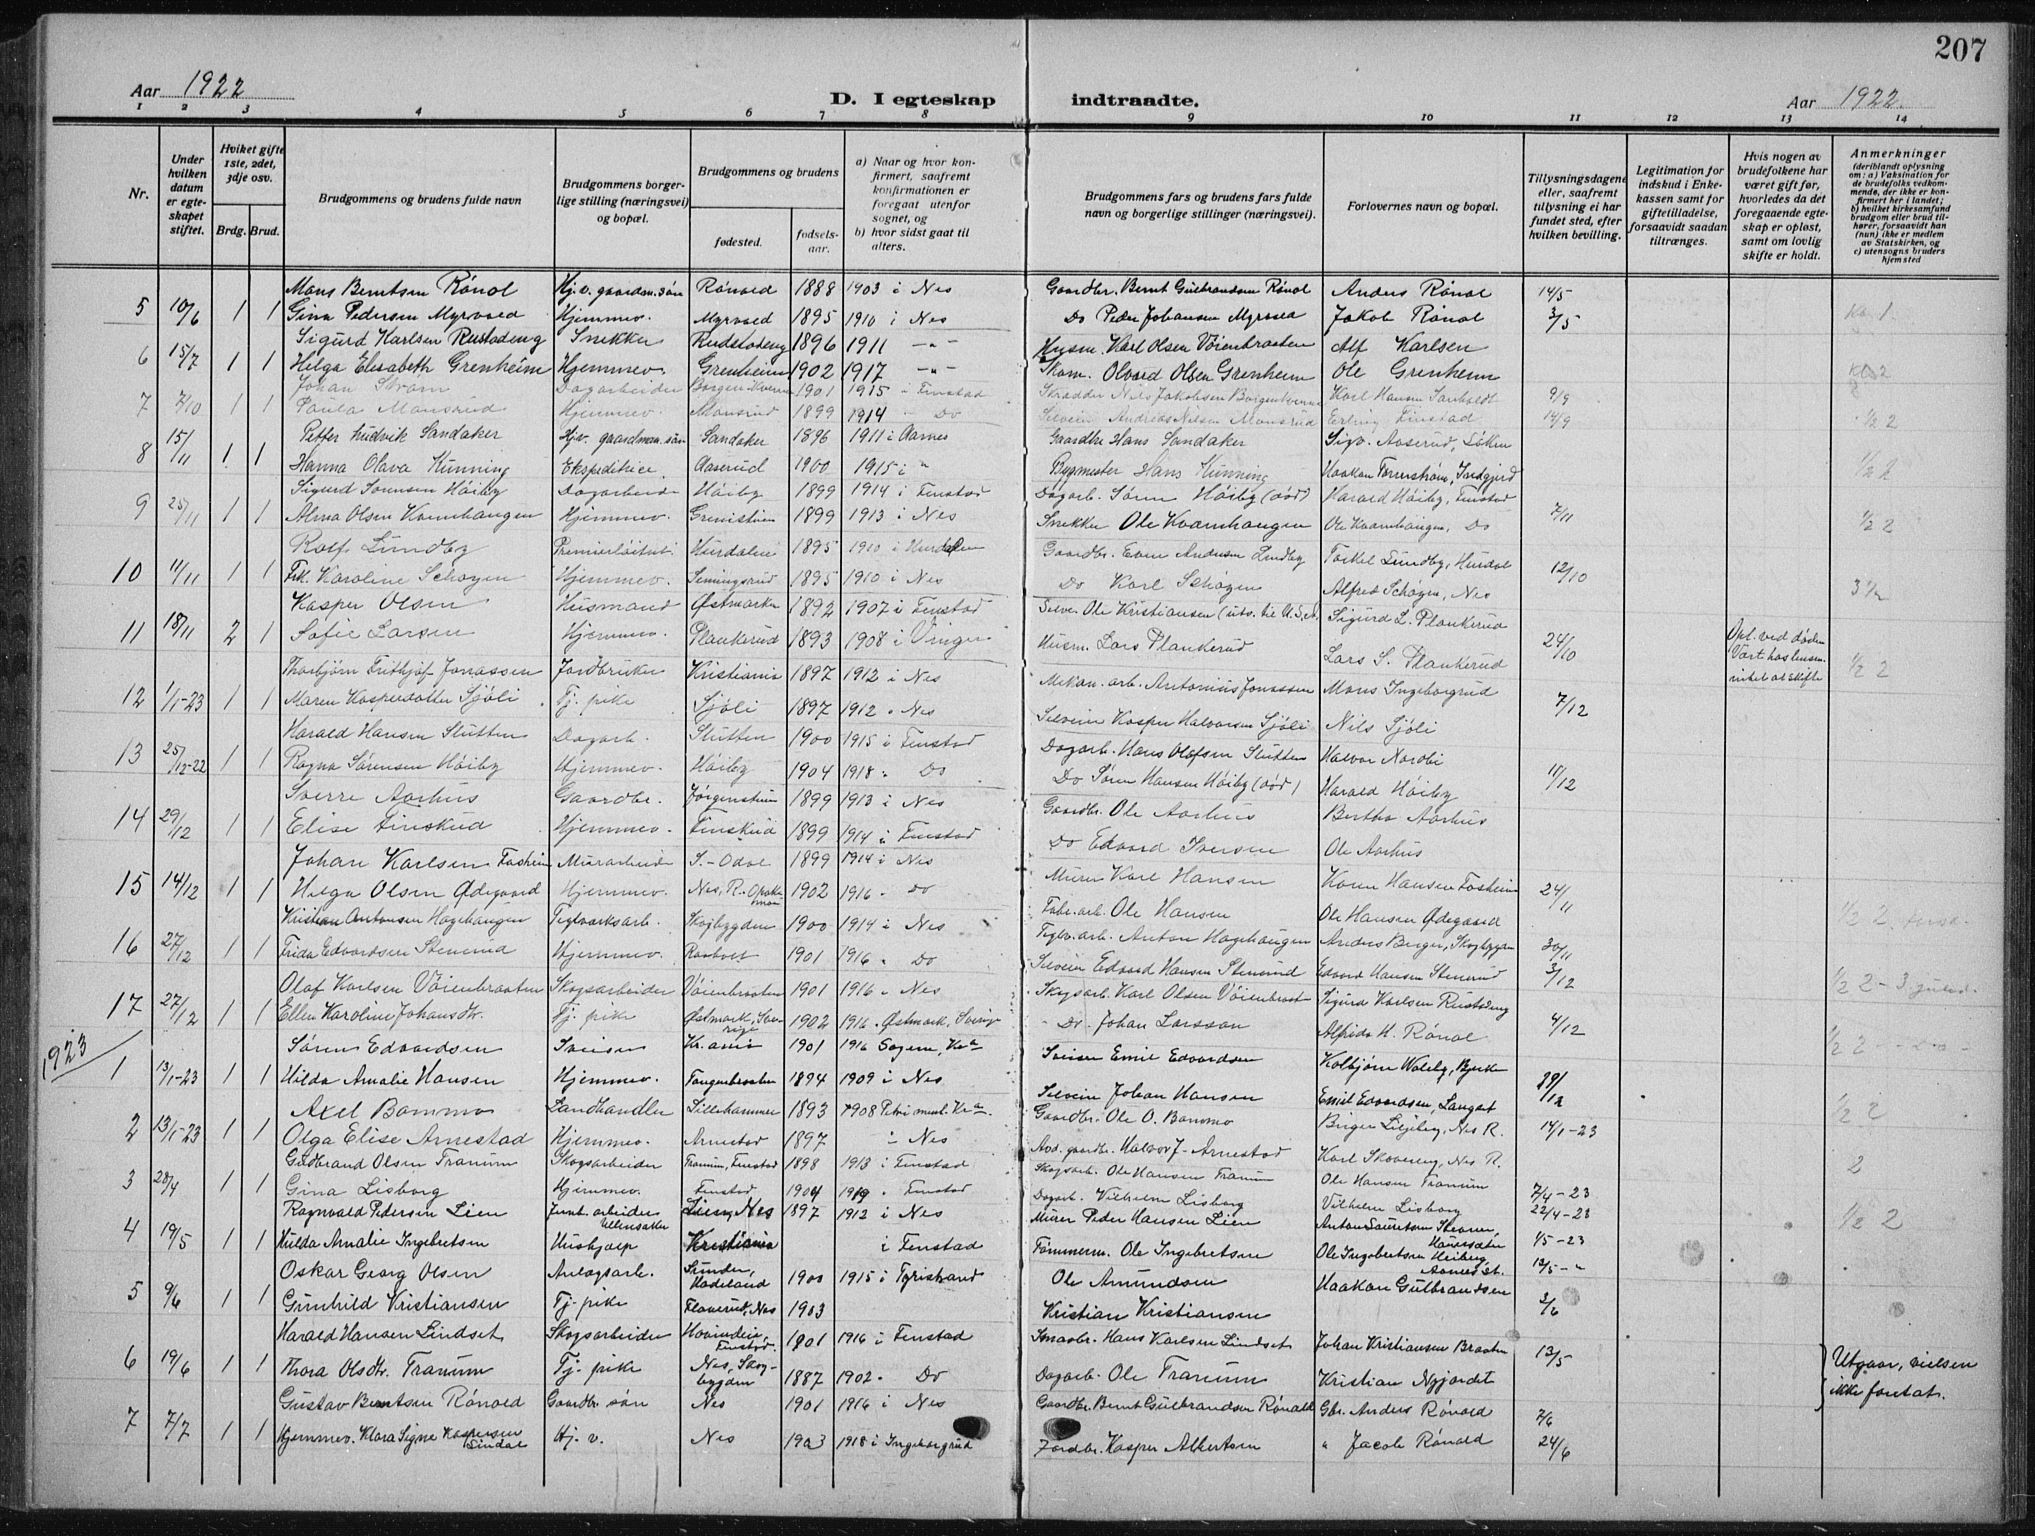 207
Aar 1922
D. I egteskap indtraadte.
Aar 1922.
1 2 3 4 5 6 7 8 9 10 11 12 13 14
Nr.
Under hvilken datum er egteskapet stiftet.
Hviket gifte 1ste, 2det, 3dje osv.
Brdg. Brud.
Brudgommens og brudens fulde navn
Brudgommens borgerlige stilling (næringsvei) og bopæl.
Brudgommens og brudens
fødested.
fødselsaar.
a) Naar og hvor konfirmert, saafremt konfirmationen er foregaat utenfor sognet, og
b) hvor sidst gaat til alters.
Brudgommens fars og brudens fars fulde navn og borgerlige stillinger (næringsvei).
Forlovernes navn og bopæl.
Tillysningsdagene eller, saafremt tillysning ei har fundet sted, efter hvilken bevilling.
Legitimation for indskud i Enkekassen samt for giftetilladelse, forsaavidt saadan tiltrænges.
Hvis nogen av brudefolkene har været gift før, hvorledes da det foregaaende egteskap er opløst, samt om lovlig skifte er holdt.
Anmerkninger
(deriblandt oplysning om: a) Vaksination for de brudefolks vedkommende, der ikke er konfirmert her i landet; b) hvilket kirkesamfund brudgom eller brud tilhører, forsaavidt han (hun) ikke er medlem av Statskirken, og c) utensogns bruders hjemsted
Mons Berntsen Rónol Hj. v. gaardm. søn Rónold 1888 1903 i Nes Gaardbr. Bernt Gulbrandsen Rónol Anders Rónol 14/5
5 10/6 1 1 Gina Pedersen Myrvold Hjemmev. Myrvold 1895 1910 i Nes Do Peder Johansen Myrvold Jakob Rónol 3/5
Sigurd Karlsen Rustadeng Snekker Rudstadeng 1896 1911 -"- Husm. Karl Olsen Vöienbraaten Alf Karlsen
6 15/7 1 1 Helga Elisabeth Grenheim Hjemmev. Grenheim 1902 1917 -"- Skom. Olvard Olsen Grenheim Ole Grenheim
Johan Strøm Dagarbeider 1901 1915 i Fenstad Skrædder Nils Jakobsen Borgenkvern Karl Hansen 9/9
7 7/10 1 1 Paula Monsrud Hjemmev. Monsrud 1899 1914 - Do Selveier Andreas Nilsen Monsrud Erling Finstad 14/9 1/2 2
Petter Ludvik Sandaker Hjv. gaardman. søn Sandaker 1896 1911 i Aarnes Gaardbr Hans Sandaker Sigv. Aaserud,
8 15/11 1 1 Hanna Olava Kunning Ekspeditrice Aaserud 1900 1915 i " Bygmester Hans Kunning Haakon
Sigurd Sørensen Høiby Dagarbeider Høiby 1899 1914 i Fenstad Dagarb. Søren Høiby (død) Harald Høiby, Fenstad
9 25/11 1 1 Alma Olsen Kvernhaugen Hjemmev. 1899 1913 i Nes Snekker Ole Kvarnhaugen Ole Kvarnhaugen, Do 7/11 1/2 2
Rolf Lundby Premierløitnt. Hurdalen 1895 1910 i Hurdalen Gaardbr. Even Andersen Lundby Torkel Lundby, Hurdal
10 11/11 1 1 Frk. Karoline Schøyen Hjemmev. 1895 1910 i Nes Do Karl Schøyen Alfred Schøyen, Nes 12/10
Kasper Olsen Husmand Østmarka 1892 1907 i Fenstad Selve. Ole Kristiansen (utv. til U.S.A) Sigurd L. Plankerud
11 18/11 2 1 Sofie Larsen Hjemmev. Plankerud 1893 1908 i Vinger Husm. Lars Plankerud Lars S. Plankerud 24/10 Opl. ved døden 1/2 2
Thorbjørn Frithjof Jonassen Jordbruker Kristiania 1897 1912 i Nes Mekan. arb. Antonius Jonassen Mons Ingeborgrud
12 1/1-23 1 1 Maren Kaspersdatter Sjøli Tj. pike Sjøli 1897 1912 " Nes Selveier Kasper Halvorsen Sjøli Nils Sjøli 7/12
Harald Hansen Slutten Dagarb. Slutten 1900 1915 i Fenstad Dagarb. Hans Olafsen Slutten Halvor Nordbi
13 25/12-22 1 1 Ragna Sørensen Høiby Hjemmev. Høiby 1904 1918 " Do Do Søren Hansen Høiby (død) Harald Høiby 11/12
Sverre Aarhus Gaardbr. Jørgenstuen 1899 1913 i Nes Gaardbr. Ole Aarhus Bertha Aarhus
14 29/12 1 1 Elise Finskud Hjemmev. Finskud 1899 1914 i Fenstad Do Edvard Iversen Ole Aarhus
Johan Karlsen Fosheim Murarbeider S.-Odal 1899 1914 i Nes Murer Karl Hansen Karen Hansen Fosheim
15 14/12 1 1 Helga Olsen Ødegaard Hjemmev. Nes, R. 1902 1916 - Do Fabr. arb. Ole Hansen Ole Hansen Ødegaard 24/11
Kristian Antonsen Hagehaugen Teglverksarb. Skogbygden 1900 1914 i Nes Teglv. arb. Anton Hagehaugen Anders Berger, Skogbygden 30/11
16 27/12 1 1 Frida Edvardsen Stenerud Hjemmev. Raaholt 1901 1916 " Do Selveier Edvard Hansen Stenerud Edvard Hansen Stenerud 3/12
Olaf Karlsen Vöienbraaten Skogsarbeider Vöienbraaten 1901 1916 " Nes Skogsarb. Karl Olsen Vöienbraat Sigurd Karlsen Rustadeng
17 27/12 1 1 Ellen Karoline Johansdtr. Tj. pike Østmark, Sverige 1902 1916 " Østmark, Sverige Do. Johan Larsson Alfhilda H. Rónol 4/12
1923
Søren Edvardsen Sveiser Kr.ania 1901 1916 Sagene, Kra Sveiser Emil Edvardsen Kolbjørn
1 13/1-23 1 1 Hilda Amalie Hansen Hjemmev. Tangenbraaten 1894 1909 i Nes Selveier Johan Hansen Emil Edvardsen, Langset
Axel Bommo Landhandler Lillehammer 1893 1908 Petri menl. Kra. Gaardbr. Ole O. Bommo Birger Liejby, Nes R. 14/1-23
2 13/1-23 1 1 Olga Elise Arnestad Hjemmev. Arnestad 1897 i Nes gaardbr. Halvor J. Arnestad Karl Nes R. 2
Gudbrand Olsen Tranum Skogsarbeider Tranum, Fenstad 1898 1913 i Fenstad Skogsarb. Ole Hansen Tranum Ole Hansen Tranum
3 28/4 1 1 Gina Lisborg Hjemmev. Fenstad 1904 1919 " Fenstad Dagarb. Vilhelm Lisborg Vilhelm Lisborg 7/4-23 22/4-23
Ragnvald Pedersen Lien Jernb. arbeider Ullensaker Lien, Nes 1897 1912 i Nes Murer Peder Hansen Lien Anton 1/5-23
4 19/5 1 1 Hulda Amalie Ingebretsen Hushjælp Kristiania i Fenstad Tømmerm. Ole Ingebretsen Ole Ingebretsen 13/5-"
Oskar Georg Olsen Anlægsarb. Hadeland 1900 1915 i Tyristrand Ole Amundsen Haakon Gulbrandsen
5 9/6 1 1 Gunhild Kristiansen Tj-pike Flaverud, Nes 1903 Kristian Kristiansen 2/6
Harald Hansen Lindset Skogsarbeider Hovindeie, Fenstad. 1901 1916 i Fenstad Smaabr. Hans Karlsen Lindset Johan Kristiansen Braaten
6 19/6 1 1 Thora Olsdtr. Tranum Tj. pike Nes, Skogbygden 1887 1902 - Do Dagarb. Ole Tranum Kristian Nyjordet 13/5 Utgaar, vielsen ikke foretat.
Gustav Berntsen Rónold Gaardbr. søn Nes 1901 1916 i Nes Gaardbr. Bernt Gulbrandsen Rónold Gbr. Anders Rónold 7/6
7 7/7 1 1 Hjemmev. Klara Signe Kaspersen Lindal Hj. v. Nes 1903 1918 i Ingeborgrud Jordbr. Kasper Albertsen " Jacob Rónold 24/6